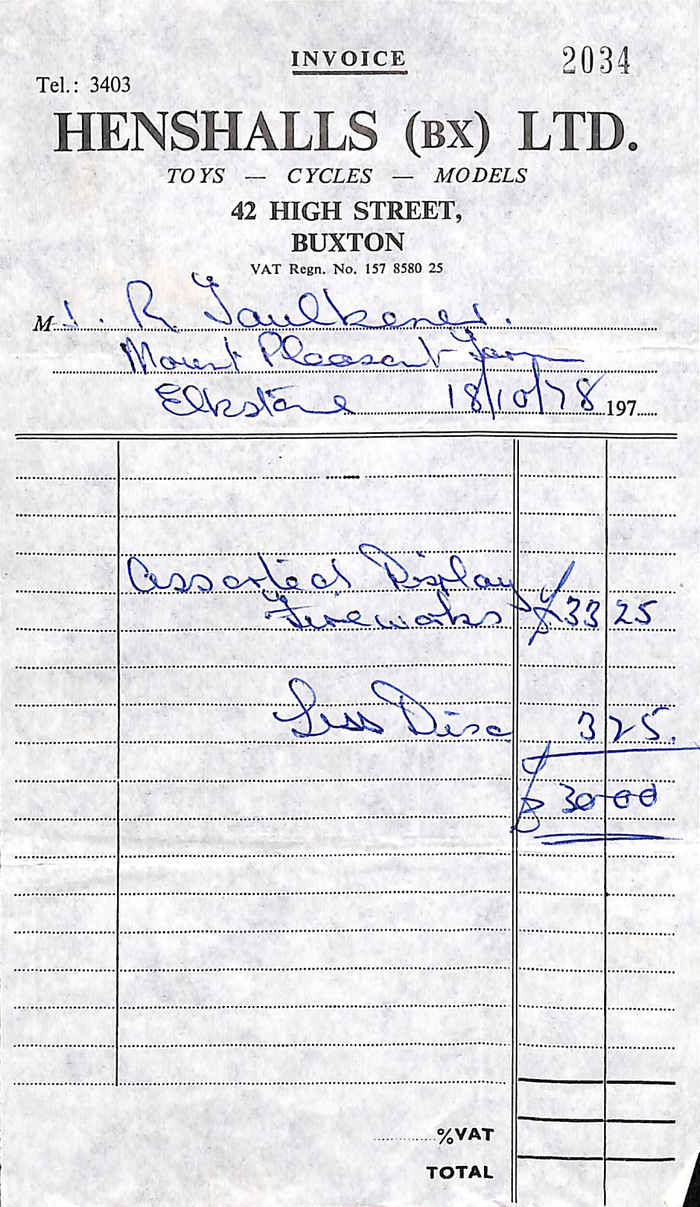 INVOICE 2034
Tel.: 3403
HENSHALLS (BX) LTD.
TOYS — CYCLES — MODELS
42 HIGH STREET,
BUXTON
VAT Regn. No. 157 8580 25
M R. Faulkener.
Mount Pleasant Farm
Elkstone 18/10/78 197
Assorted Display
Fireworks £33 25
Less Disc 3 25.
£30-00
%VAT
TOTAL